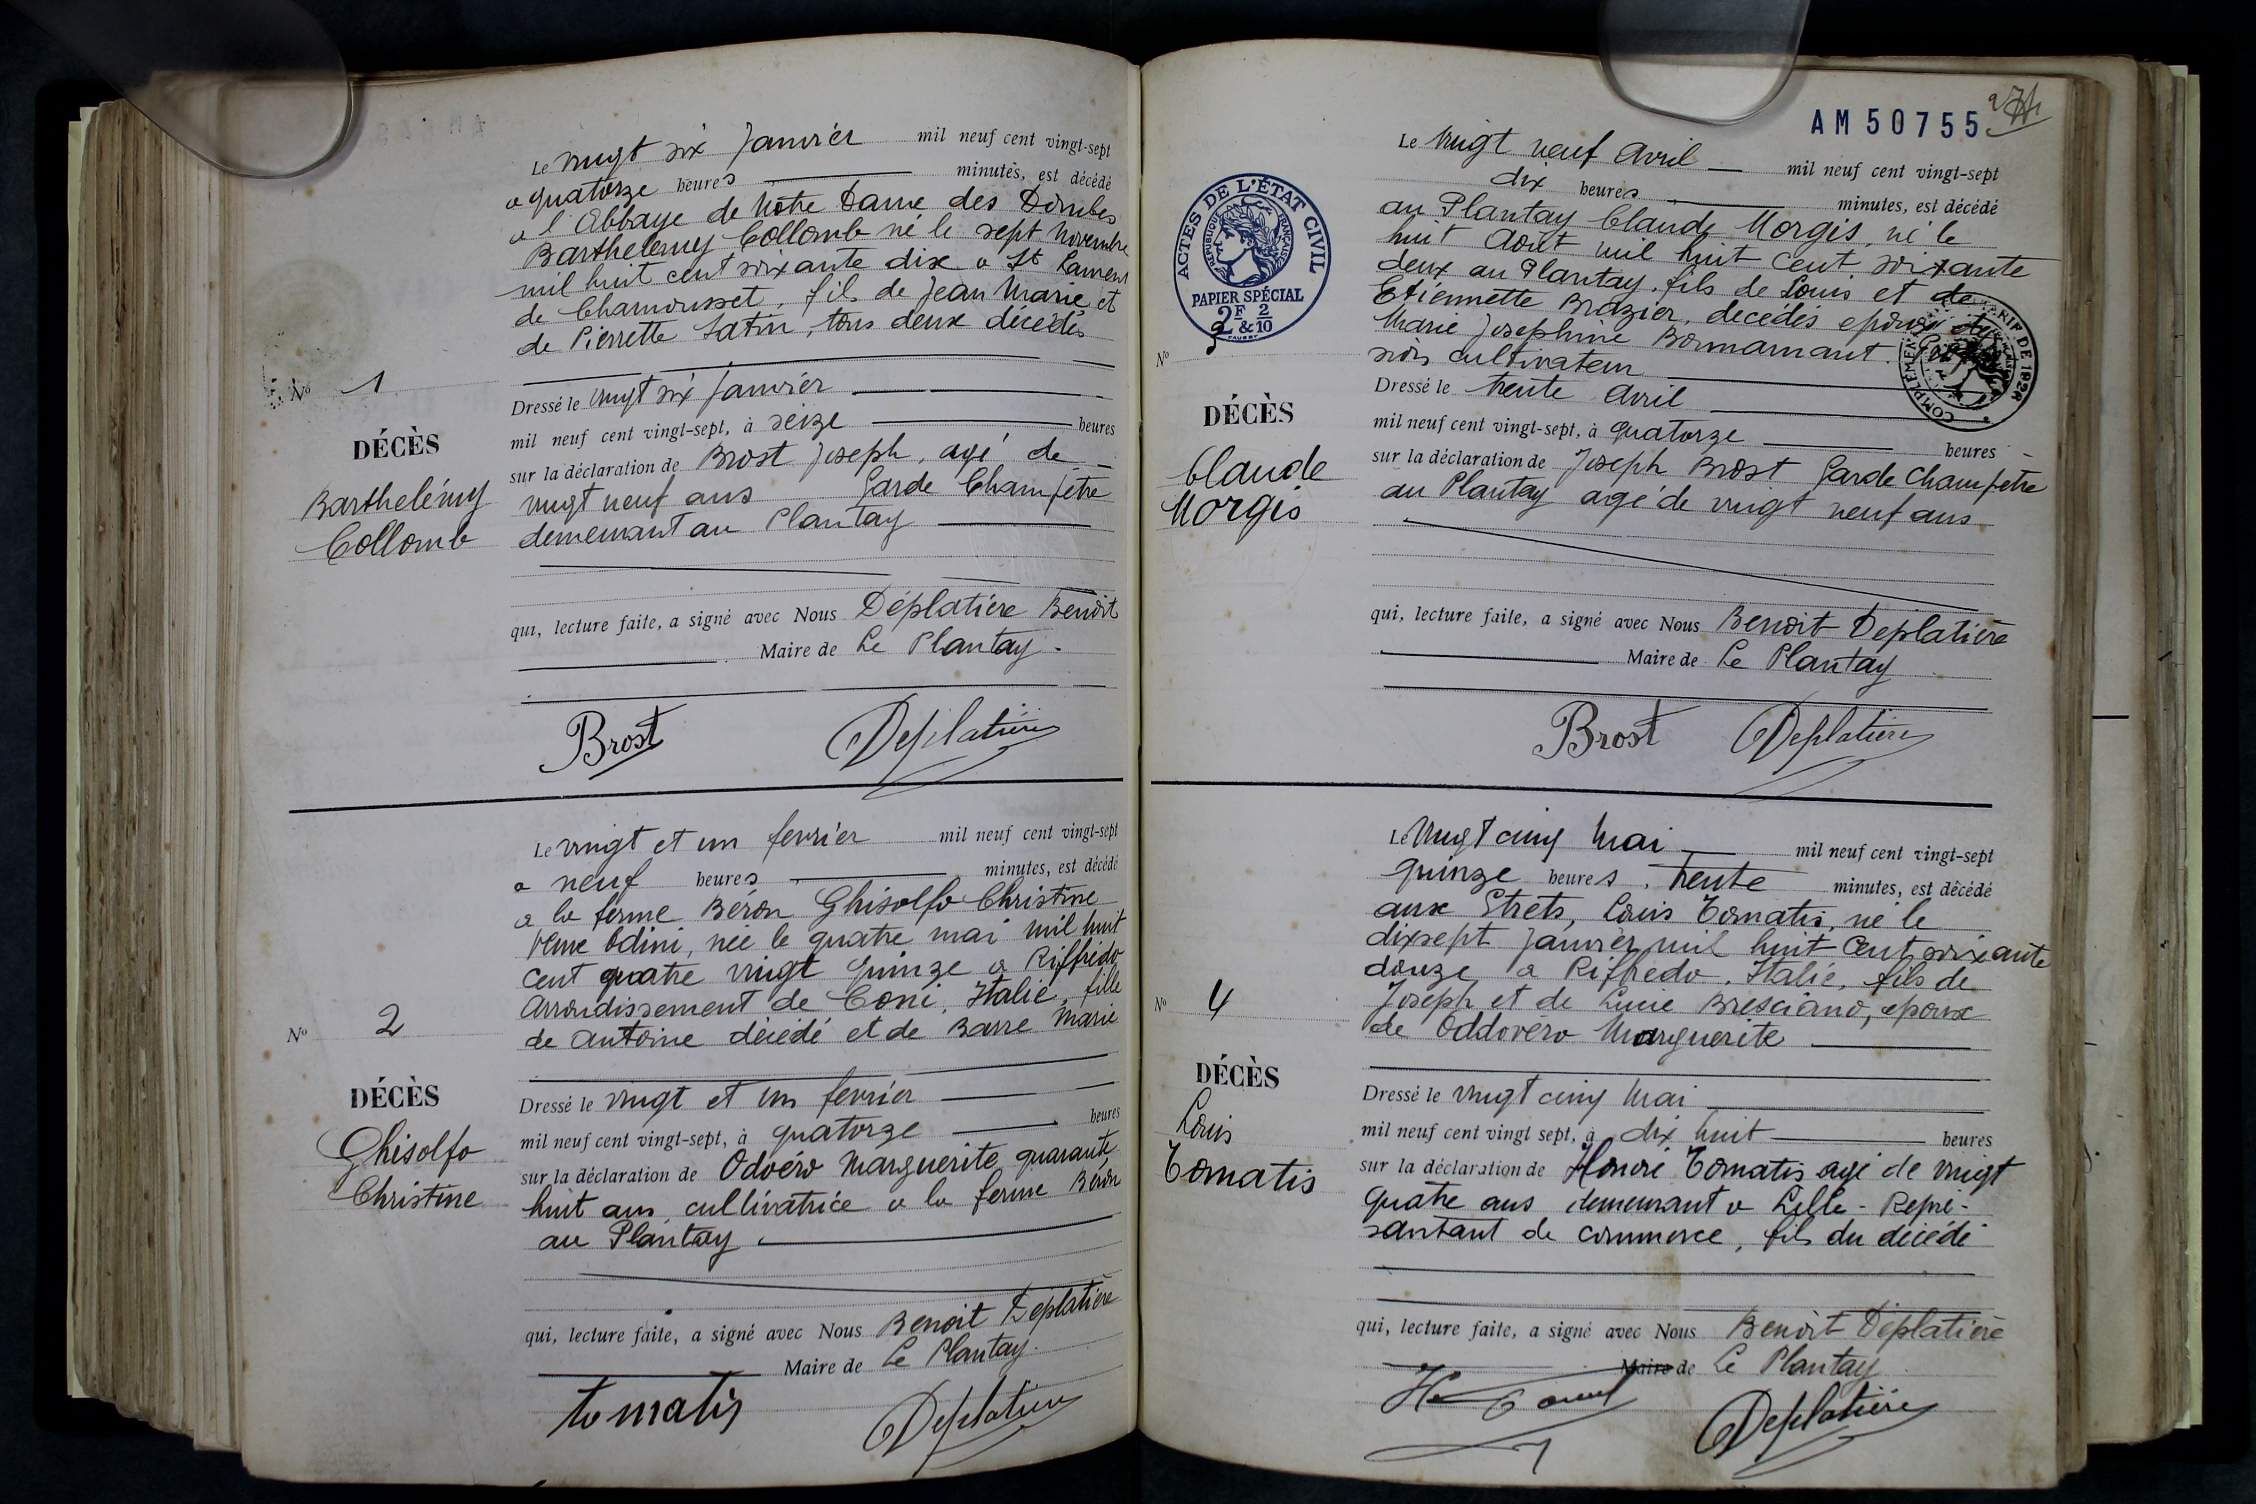 Le vingt six Janvier mil neuf cent vingt-sept
a quatorze heures minutes, est décédé
a l'Abbaye de Notre Dame des Dombes
Barthelemy Collomb né le sept Novembre
mil huit cent soixante dix a St Laurent
de Chamousset, fils de Jean Marie et
de Pierrette Satin, tous deux décédés
No 1
DÉCÈS
Barthelémy
Collomb
Dressé le vingt six Janvier
mil neuf cent vingt-sept, à seize heures
sur la déclaration de Brost Joseph, agé de
vingt neuf ans Garde Champêtre
demeurant au Plantay
qui, lecture faite, a signé avec Nous Déplatière Benoit
Maire de Le Plantay.
Brost Deplatière
Le vingt et un fevrier mil neuf cent vingt-sept
a neuf heures minutes, est décédé
a la ferme Béron Ghisolfo Christine
Veuve Odini, née le quatre mai mil huit
cent quatre vingt quinze a Riffrédo
arrondissement de Coni, Italie, fille
de Antoine décédé et de Barre Marie
No 2
DÉCÈS
Ghisolfo
Christine
Dressé le vingt et un fevrier
mil neuf cent vingt-sept, à quatorze heures
sur la déclaration de Odoéro Marguerite quarante
huit ans, cultivatrice a la ferme Béron
au Plantay.
qui, lecture faite, a signé avec Nous Benoit Déplatière
Maire de Le Plantay.
tomatis Deplatière
AM 50755
ACTES DE L'ÉTAT CIVIL
RÉPUBLIQUE FRANÇAISE
PAPIER SPÉCIAL
2F 2/10
&
COMPLÉMENT TARIF DE 192
Le vingt neuf Avril mil neuf cent vingt-sept
dix heures minutes, est décédé
au Plantay Claude Morgis, né le
huit Aout mil huit cent soixante
deux au Plantay, fils de Louis et de
Etiennette Brazier, décédés epoux de
Marie Josephine Bonnamant.
sin cultivateur
No 3
DÉCÈS
Claude
Morgis
Dressé le trente Avril
mil neuf cent vingt-sept, à quatorze heures
sur la déclaration de Joseph Brost Garde Champêtre
au Plantay agé de vingt neuf ans
qui, lecture faite, a signé avec Nous Benoit Deplatière
Maire de Le Plantay
Brost Deplatière
Le Vingt cinq Mai mil neuf cent vingt-sept
quinze heures, trente minutes, est décédé
aux Strets, Louis Tomatis, né le
dixsept Janvier mil huit cent soixante
douze a Rifredo, Italie, fils de
Joseph et de Lucie Bresciano, epoux
de Oddovéro Marguerite
No 4
DÉCÈS
Louis
Tomatis
Dressé le vingt cinq Mai
mil neuf cent vingt sept, à dix huit heures
sur la déclaration de Honoré Tomatis agé de vingt
quatre ans demeurant a Lille - Repré-
santant de commerce, fils du décédé
qui, lecture faite, a signé avec Nous Benoit Déplatière
Maire de Le Plantay
Deplatière